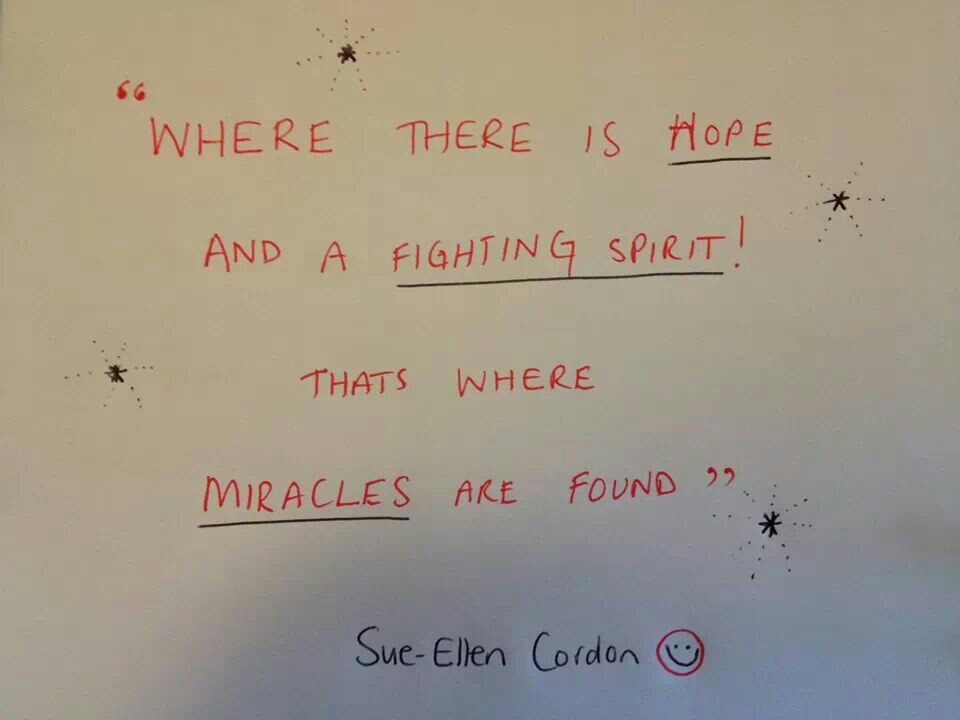 “WHERE THERE IS HOPE
AND A FIGHTING SPIRIT!
THATS WHERE
MIRACLES ARE FOUND”
Sue-Ellen Cordon